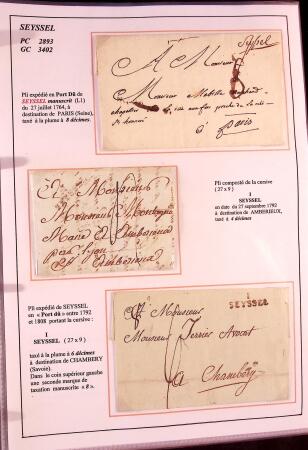 SEYSSEL
PC 2893
GC 3402
Pli expédié en Port Dû de
SEYSSEL manuscrit (L1)
du 27 juillet 1764, à
destination de PARIS (Seine),
taxé à la plume à 8 décimes.
Seyssel
A Monsieur
Monsieur
8
à Paris
Pli composté de la cursive
(27 x 9)
1
SEYSSEL
en date du 27 septembre 1792
à destination de AMBERIEUX,
taxé à 4 décimes
A Monsieur
Monsieur Montagnat
Maire d'Amberieux
par Lyon
Pli expédié de SEYSSEL
en « Port dû » entre 1792
et 1808 portant la cursive :
1
SEYSSEL (27 x 9)
taxé à la plume à 6 décimes
à destination de CHAMBERY
(Savoie).
Dans le coin supérieur gauche
une seconde marque de
taxation manuscrite « 8 ».
1
SEYSSEL
A Monsieur
Monsieur Perrier Avocat
a Chambéry